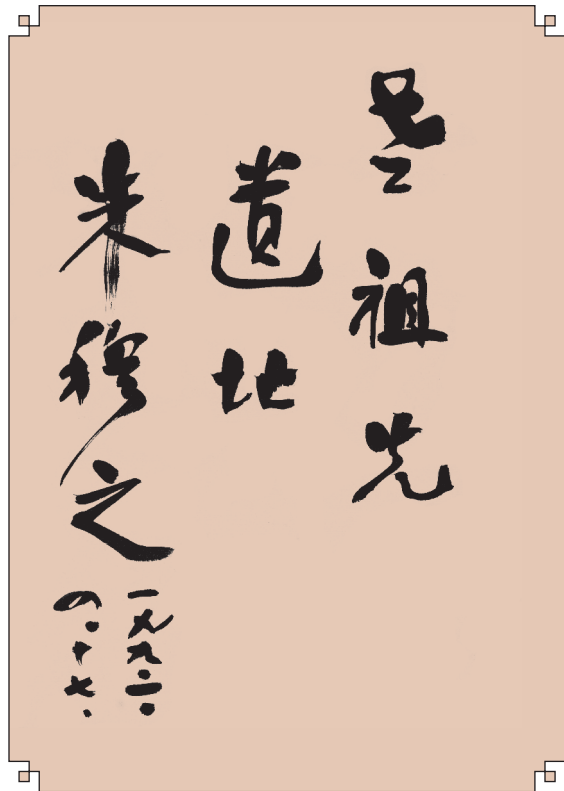 祖先
遗地
朱穆之
一九九二.
四.十七.